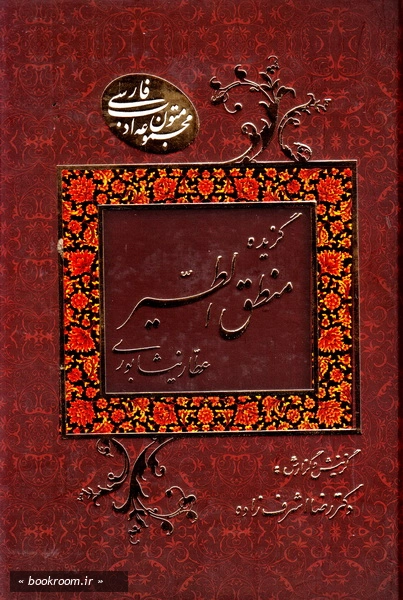 مجموعه متون ادبی فارسی
گزیده
منطق الطّیر
عطار نیشابوری
گزینش و گزارش:
دکتر رضا اشرف زاده
« bookroom.ir »